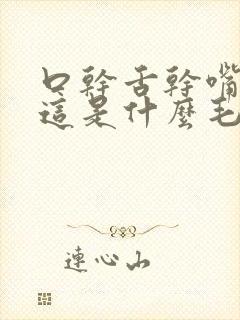 口幹舌幹嘴
這是什麼毛
連心山